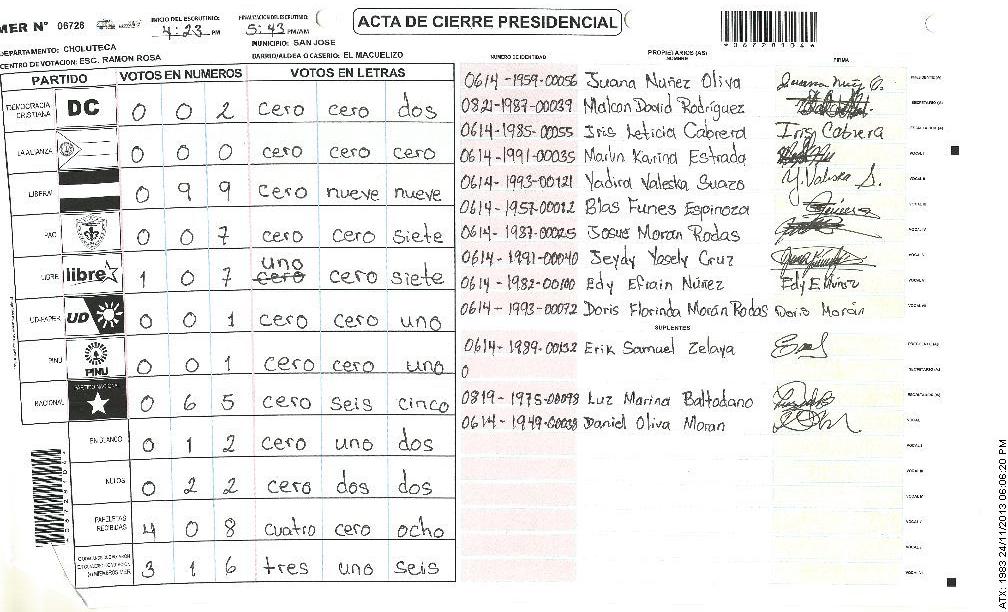 MER N° 06728 INICIO DEL ESCRUTINIO: 4:23 PM FINALIZACION DEL ESCRUTINIO: 5:43 PM/AM ACTA DE CIERRE PRESIDENCIAL
*067281046*
DEPARTAMENTO: CHOLUTECA MUNICIPIO: SAN JOSE
CENTRO DE VOTACION: ESC. RAMON ROSA BARRIO/ALDEA O CASERIO: EL MACUELIZO
PARTIDO VOTOS EN NUMEROS VOTOS EN LETRAS
DEMOCRACIA CRISTIANA DC 0 0 2 cero cero dos
LA ALIANZA 0 0 0 cero cero cero
LIBERAL 0 9 9 cero nueve nueve
PAC 0 0 7 cero cero siete
uno
LIBRE libre 1 0 7 cero cero siete
UD-FAPER UD 0 0 1 cero cero uno
PINU PINU 0 0 1 cero cero uno
NACIONAL PARTIDO NACIONAL 0 6 5 cero seis cinco
EN BLANCO 0 1 2 cero uno dos
NULOS 0 2 2 cero dos dos
PAPELETAS RECIBIDAS 4 0 8 cuatro cero ocho
3 1 6 tres uno seis
NUMERO DE IDENTIDAD PROPIETARIOS (AS) NOMBRE FIRMA
0614-1959-00056 Juana Nuñez Oliva PRESIDENTE(A)
0821-1987-00039 Malcon David Rodríguez SECRETARIO (A)
0614-1985-00055 Iris Leticia Cabrera Iris Cabrera ESCRUTADOR (A)
0614-1991-00035 Marlin Karina Estrada VOCAL I
0614-1993-00121 Yadira Valeska Suazo Y. Valeska S. VOCAL II
0614-1957-00012 Blas Funes Espinoza VOCAL III
0614-1987-00025 Josue Moran Rodas VOCAL IV
0614-1991-00040 Jeydy Yosely Cruz VOCAL V
0614-1982-00100 Edy Efrain Núñez VOCAL VI
0614-1993-00072 Doris Florinda Morán Rodas Doris Morán VOCAL VII
SUPLENTES
0614-1989-00132 Erik Samuel Zelaya PRESIDENTE(A)
0 SECRETARIO (A)
0819-1975-00098 Luz Marina Baltodano ESCRUTADOR (A)
0614-1949-00038 Daniel Oliva Moran VOCAL I
ATX: 1983 24/11/2013 06:06:20 PM